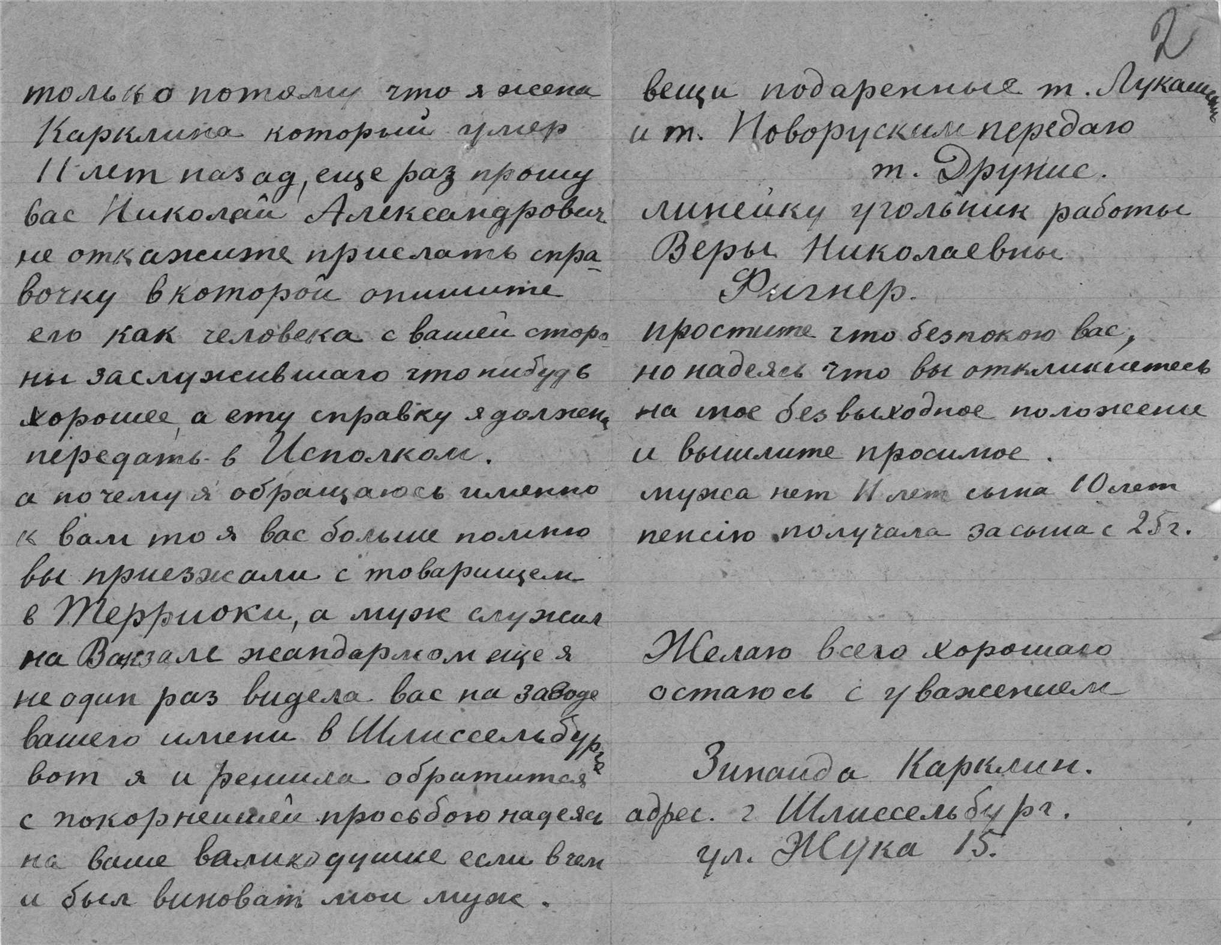 2
только потому что я жена
Карклина который умер
11 лет назад, еще раз прошу
вас Николай Александрович
не откажите прислать спра-
вочку в которой опишите
его как человека с вашей сторо-
ны заслужившаго что нибудь
хорошее, а ету справку я должна
передать в Исполком.
а почему я обращаюсь именно
к вам то я вас больше помню
вы приезжали с товарищем
в Терриоки, а муж служил
на Вакзале жандармом еще я
не один раз видела вас на заводе
вашего имени в Шлиссельбурге
вот я и решила обратится
с покорнейшей просьбою надеясь
на ваше валикодушие если в чем
и был виноват мой муж.
вещи подаренные т. Лукашевич
и т. Новоруским передаю
т. Друнис.
линейку угольник работы
Веры Николаевны
Фигнер.
простите что безпокою вас,
но надеясь что вы откликнетесь
на мое безвыходное положение
и вышлите просимое.
мужа нет 11 лет сына 10 лет
пенсію получала за сына с 25 г.
Желаю всего хорошаго
остаюсь с уважением
Зинаида Карклин.
адрес. г Шлиссельбург.
ул. Жука 15.